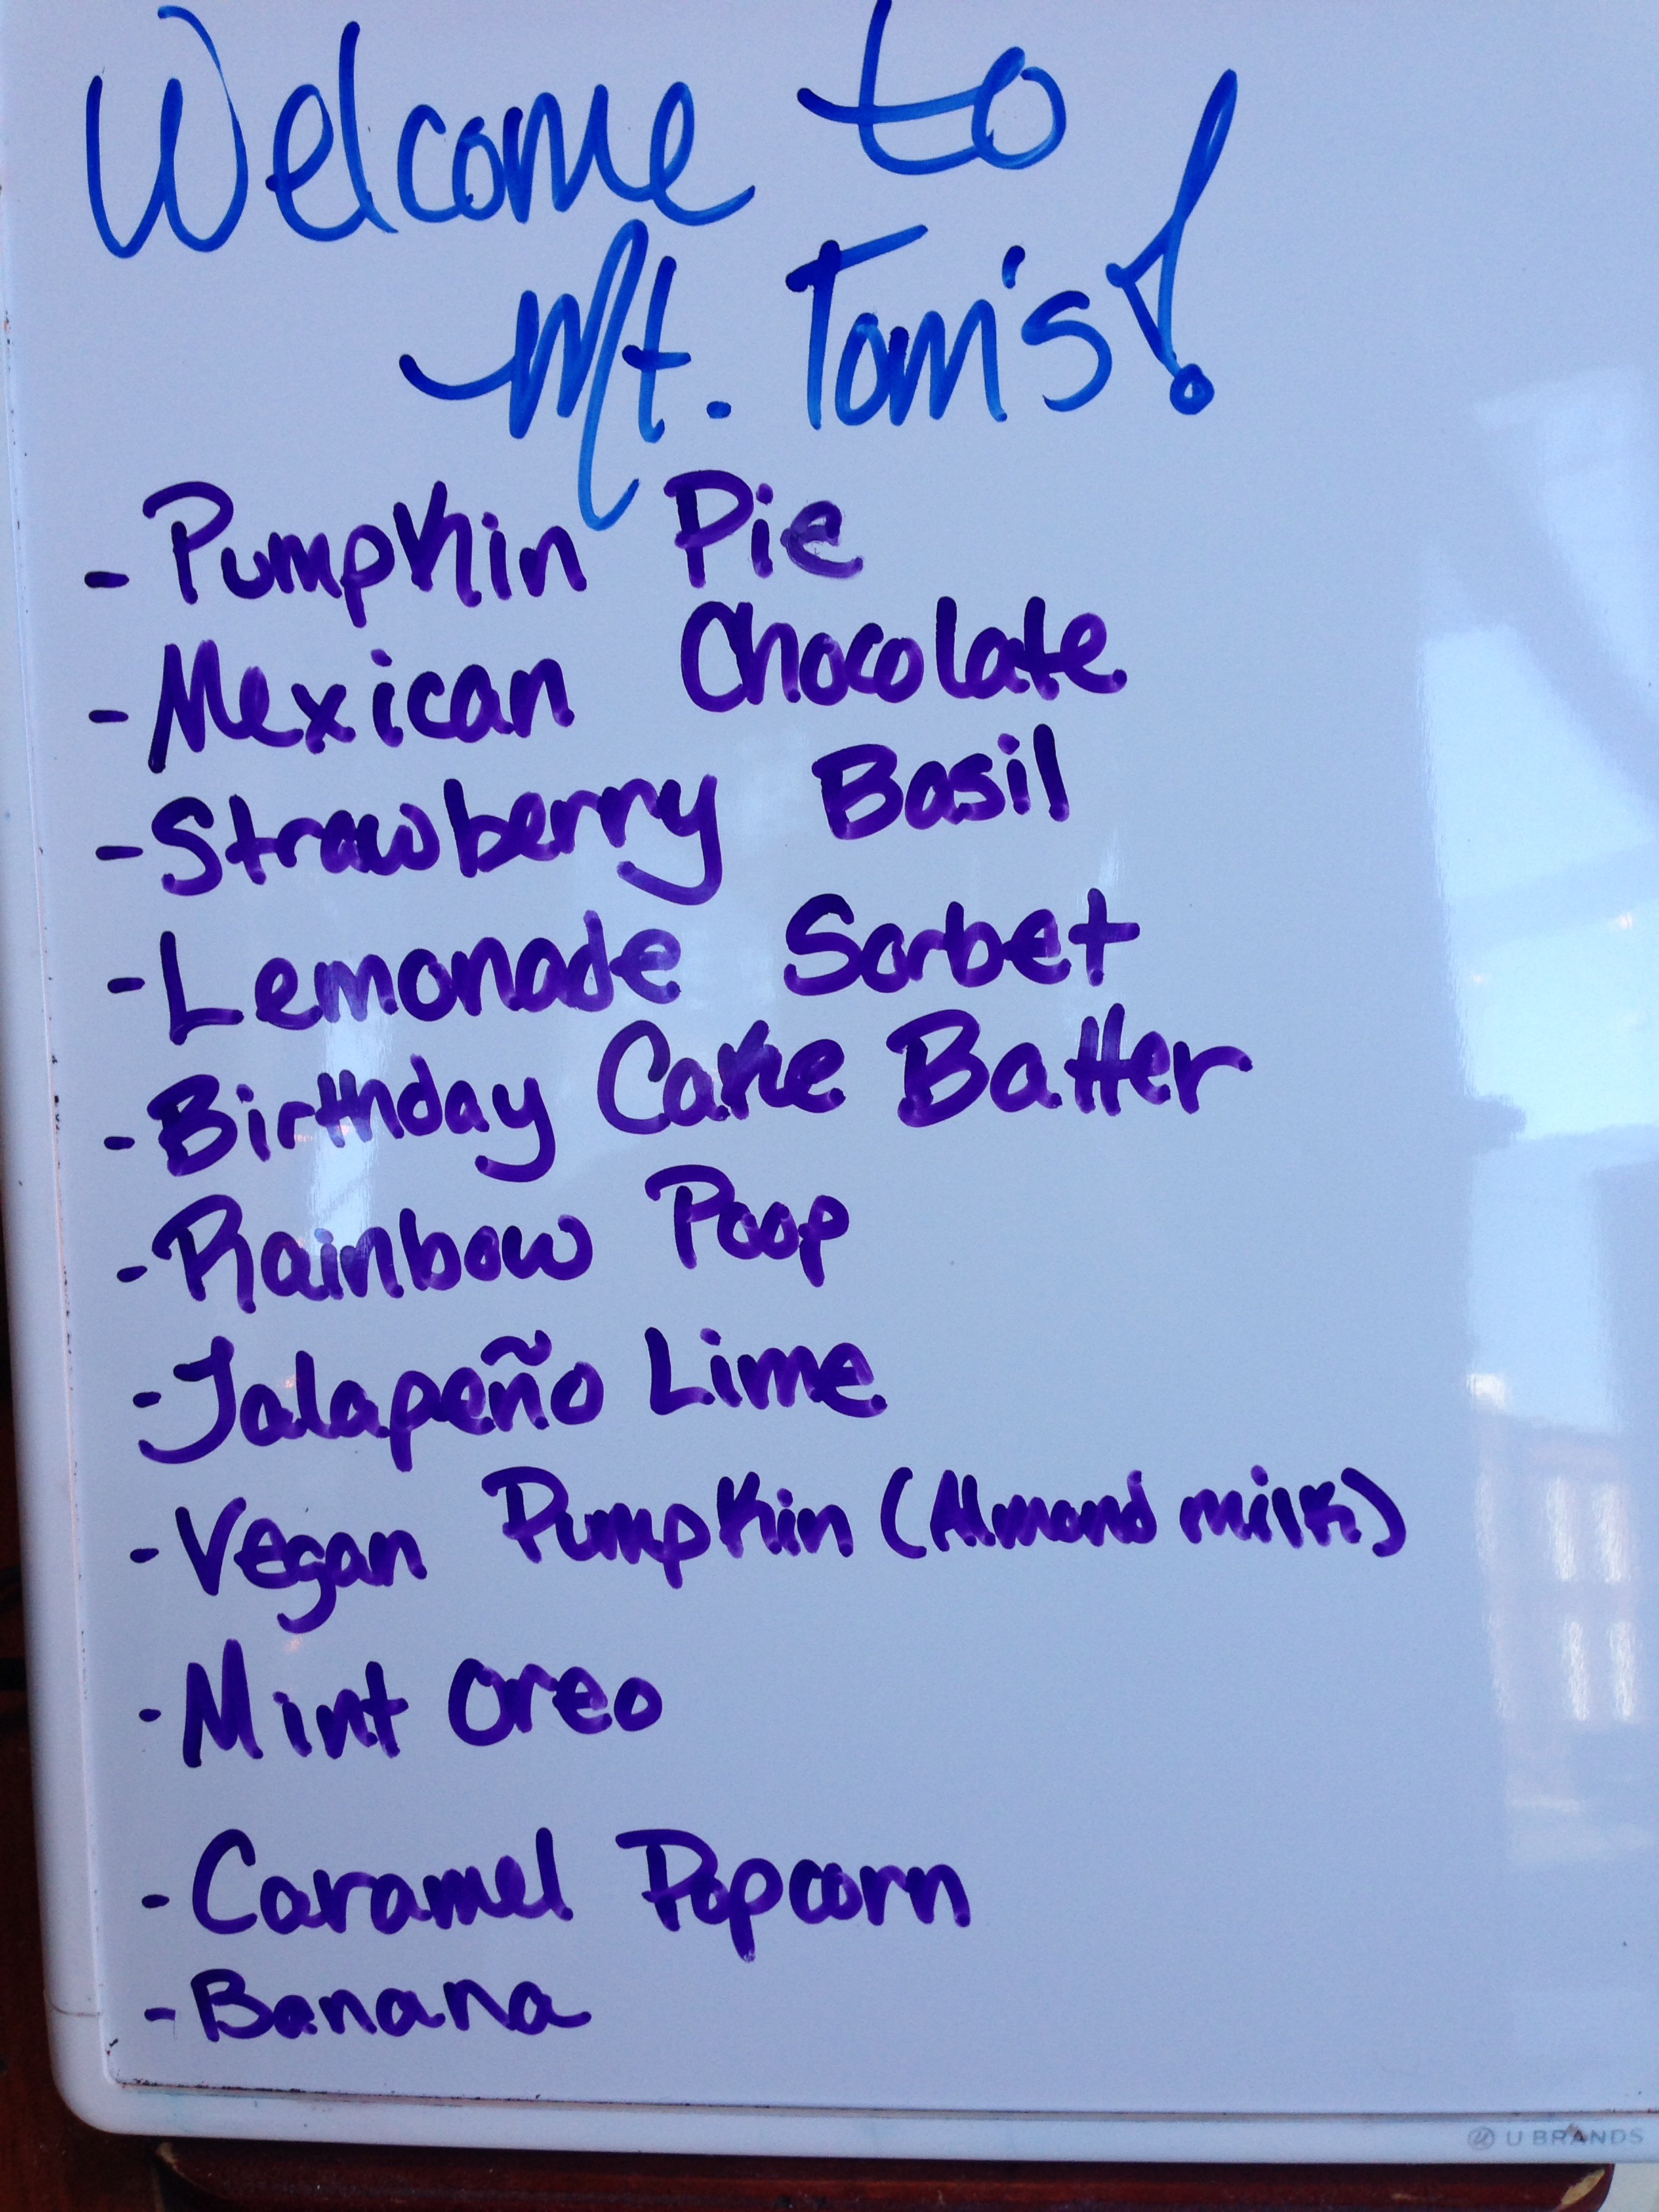 Welcome to
Mt. Tom's!
- Pumpkin Pie
- Mexican Chocolate
- Strawberry Basil
- Lemonade Sorbet
- Birthday Cake Batter
- Rainbow Poop
- Jalapeño Lime
- Vegan Pumpkin (Almond milk)
- Mint Oreo
- Caramel Popcorn
- Banana
U BRANDS